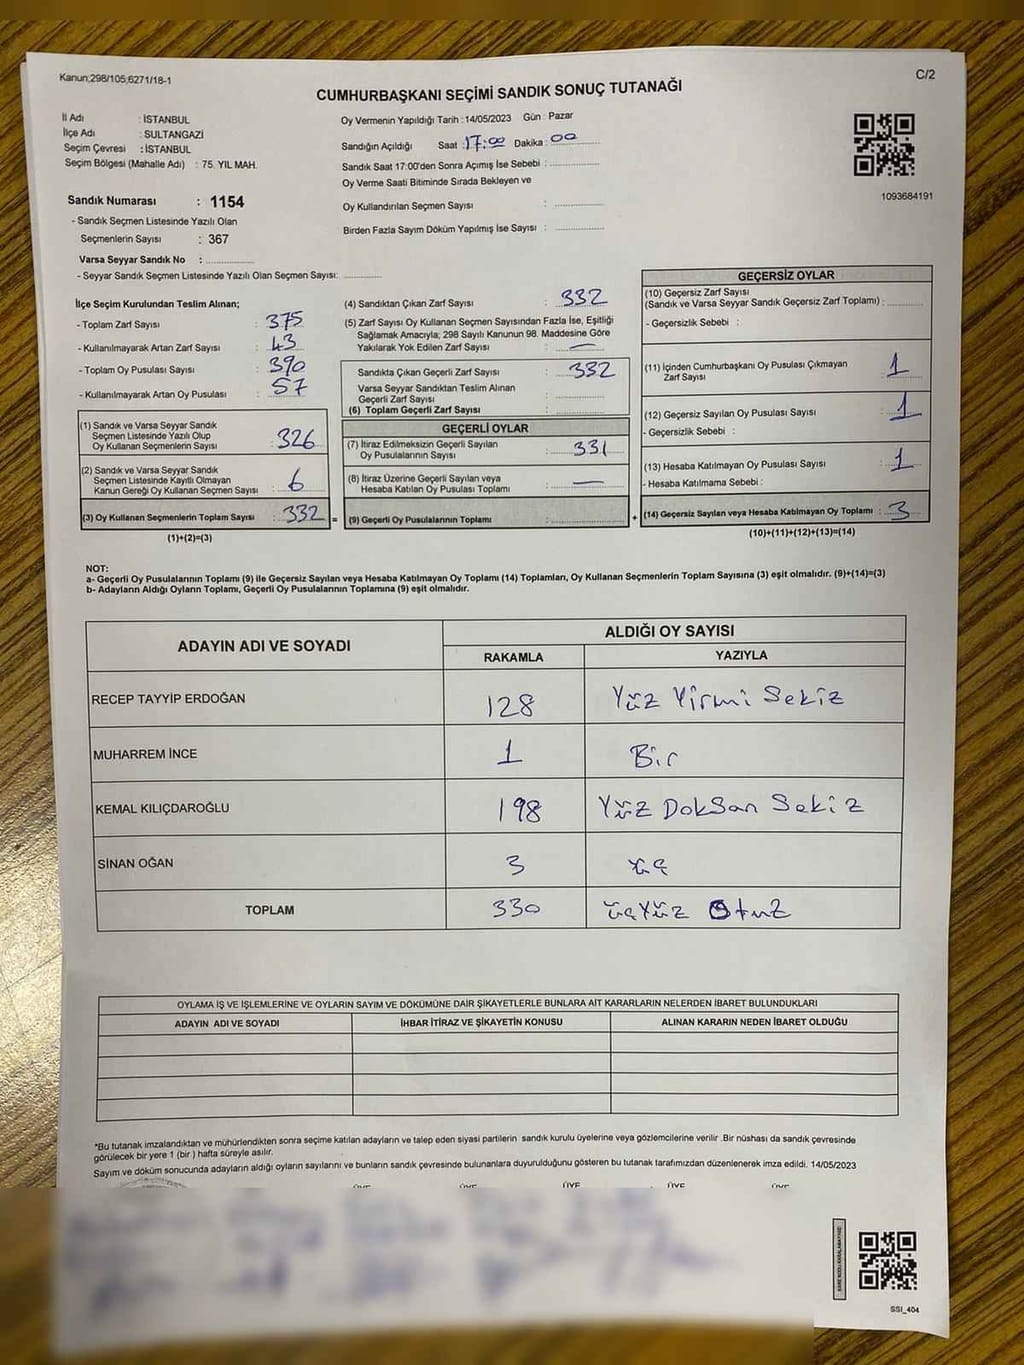 Kanun;298/105;6271/18-1
C/2
CUMHURBAŞKANI SEÇİMİ SANDIK SONUÇ TUTANAĞI
İl Adı : İSTANBUL
İlçe Adı : SULTANGAZİ
Seçim Çevresi : İSTANBUL
Seçim Bölgesi (Mahalle Adı) : 75. YIL MAH.
Sandık Numarası : 1154
- Sandık Seçmen Listesinde Yazılı Olan
Seçmenlerin Sayısı : 367
Varsa Seyyar Sandık No :
- Seyyar Sandık Seçmen Listesinde Yazılı Olan Seçmen Sayısı:
Oy Vermenin Yapıldığı Tarih :14/05/2023 Gün : Pazar
Sandığın Açıldığı Saat : 17:00 Dakika : 00
Sandık Saat 17:00'den Sonra Açımış İse Sebebi :
Oy Verme Saati Bitiminde Sırada Bekleyen ve
Oy Kullandırılan Seçmen Sayısı :
Birden Fazla Sayım Döküm Yapılmış İse Sayısı :
1093684191
İlçe Seçim Kurulundan Teslim Alınan;
- Toplam Zarf Sayısı : 375
- Kullanılmayarak Artan Zarf Sayısı : 43
- Toplam Oy Pusulası Sayısı : 390
- Kullanılmayarak Artan Oy Pusulası : 57
(1) Sandık ve Varsa Seyyar Sandık
Seçmen Listesinde Yazılı Olup
Oy Kullanan Seçmenlerin Sayısı : 326
(2) Sandık ve Varsa Seyyar Sandık
Seçmen Listesinde Kayıtlı Olmayan
Kanun Gereği Oy Kullanan Seçmen Sayısı : 6
(3) Oy Kullanan Seçmenlerin Toplam Sayısı : 332 =
(1)+(2)=(3)
(4) Sandıktan Çıkan Zarf Sayısı : 332
(5) Zarf Sayısı Oy Kullanan Seçmen Sayısından Fazla İse, Eşitliği
Sağlamak Amacıyla; 298 Sayılı Kanunun 98. Maddesine Göre
Yakılarak Yok Edilen Zarf Sayısı : —
Sandıkta Çıkan Geçerli Zarf Sayısı : 332
Varsa Seyyar Sandıktan Teslim Alınan
Geçerli Zarf Sayısı :
(6) Toplam Geçerli Zarf Sayısı :
GEÇERLİ OYLAR
(7) İtiraz Edilmeksizin Geçerli Sayılan
Oy Pusulalarının Sayısı : 331
(8) İtiraz Üzerine Geçerli Sayılan veya
Hesaba Katılan Oy Pusulası Toplamı : —
(9) Geçerli Oy Pusulalarının Toplamı : +
GEÇERSİZ OYLAR
(10) Geçersiz Zarf Sayısı
(Sandık ve Varsa Seyyar Sandık Geçersiz Zarf Toplamı) :
- Geçersizlik Sebebi :
(11) İçinden Cumhurbaşkanı Oy Pusulası Çıkmayan
Zarf Sayısı : 1
(12) Geçersiz Sayılan Oy Pusulası Sayısı : 1
- Geçersizlik Sebebi :
(13) Hesaba Katılmayan Oy Pusulası Sayısı : 1
- Hesaba Katılmama Sebebi :
(14) Geçersiz Sayılan veya Hesaba Katılmayan Oy Toplamı : 3
(10)+(11)+(12)+(13)=(14)
NOT:
a- Geçerli Oy Pusulalarının Toplamı (9) ile Geçersiz Sayılan veya Hesaba Katılmayan Oy Toplamı (14) Toplamları, Oy Kullanan Seçmenlerin Toplam Sayısına (3) eşit olmalıdır. (9)+(14)=(3)
b- Adayların Aldığı Oyların Toplamı, Geçerli Oy Pusulalarının Toplamına (9) eşit olmalıdır.
ADAYIN ADI VE SOYADI
ALDIĞI OY SAYISI
RAKAMLA YAZIYLA
RECEP TAYYİP ERDOĞAN 128 Yüz Yirmi Sekiz
MUHARREM İNCE 1 Bir
KEMAL KILIÇDAROĞLU 198 Yüz Doksan Sekiz
SİNAN OĞAN 3 üç
TOPLAM 330 üçyüz Otuz
OYLAMA İŞ VE İŞLEMLERİNE VE OYLARIN SAYIM VE DÖKÜMÜNE DAİR ŞİKAYETLERLE BUNLARA AİT KARARLARIN NELERDEN İBARET BULUNDUKLARI
ADAYIN ADI VE SOYADI İHBAR İTİRAZ VE ŞİKAYETİN KONUSU ALINAN KARARIN NEDEN İBARET OLDUĞU
*Bu tutanak imzalandıktan ve mühürlendikten sonra seçime katılan adayların ve talep eden siyasi partilerin sandık kurulu üyelerine veya gözlemcilerine verilir .Bir nüshası da sandık çevresinde
görülecek bir yere 1 (bir ) hafta süreyle asılır.
Sayım ve döküm sonucunda adayların aldığı oyların sayılarını ve bunların sandık çevresinde bulunanlara duyurulduğunu gösteren bu tutanak tarafımızdan düzenlenerek imza edildi. 14/05/2023
ÜYE ÜYE ÜYE ÜYE ÜYE
SSI_404